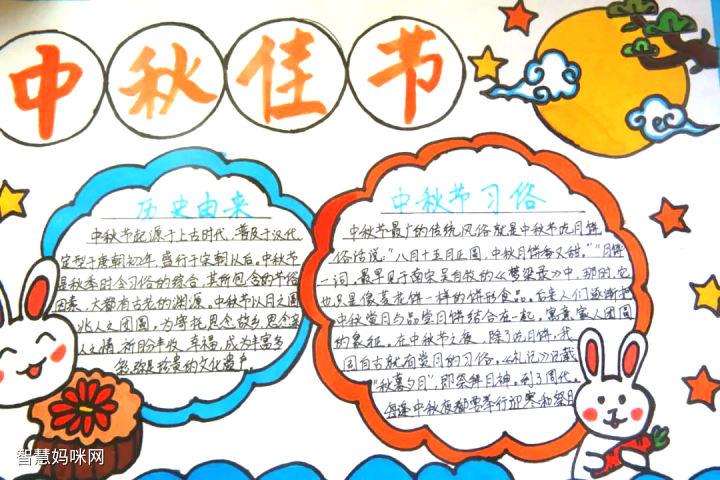 中秋佳节
历史由来
中秋节起源于上古时代,普及于汉代,
定型于唐朝初年,盛行于宋朝以后。中秋节
是秋季时令习俗的综合,其所包含的节俗
因素,大都有古老的渊源。中秋节以月之圆
兆人之团圆,为寄托思念故乡,思念亲
人之情,祈盼丰收、幸福,成为丰富多
彩、弥足珍贵的文化遗产。
中秋节习俗
中秋节最广的传统风俗就是中秋节吃月饼,
俗话说:"八月十五月正圆,中秋月饼香又甜。""月饼"
一词,最早见于南宋吴自牧的《梦梁录》中,那时,它
也只是像菱花饼一样的饼形食品。后来人们逐渐把
中秋赏月与品尝月饼结合在一起,寓意家人团圆
的象征。在中秋节之夜,除了吃月饼,我
国自古就有赏月的习俗。《礼记》记载
"秋暮夕月",即祭拜月神。到了周代,
每逢中秋夜都要举行迎寒和祭月
智慧妈咪网